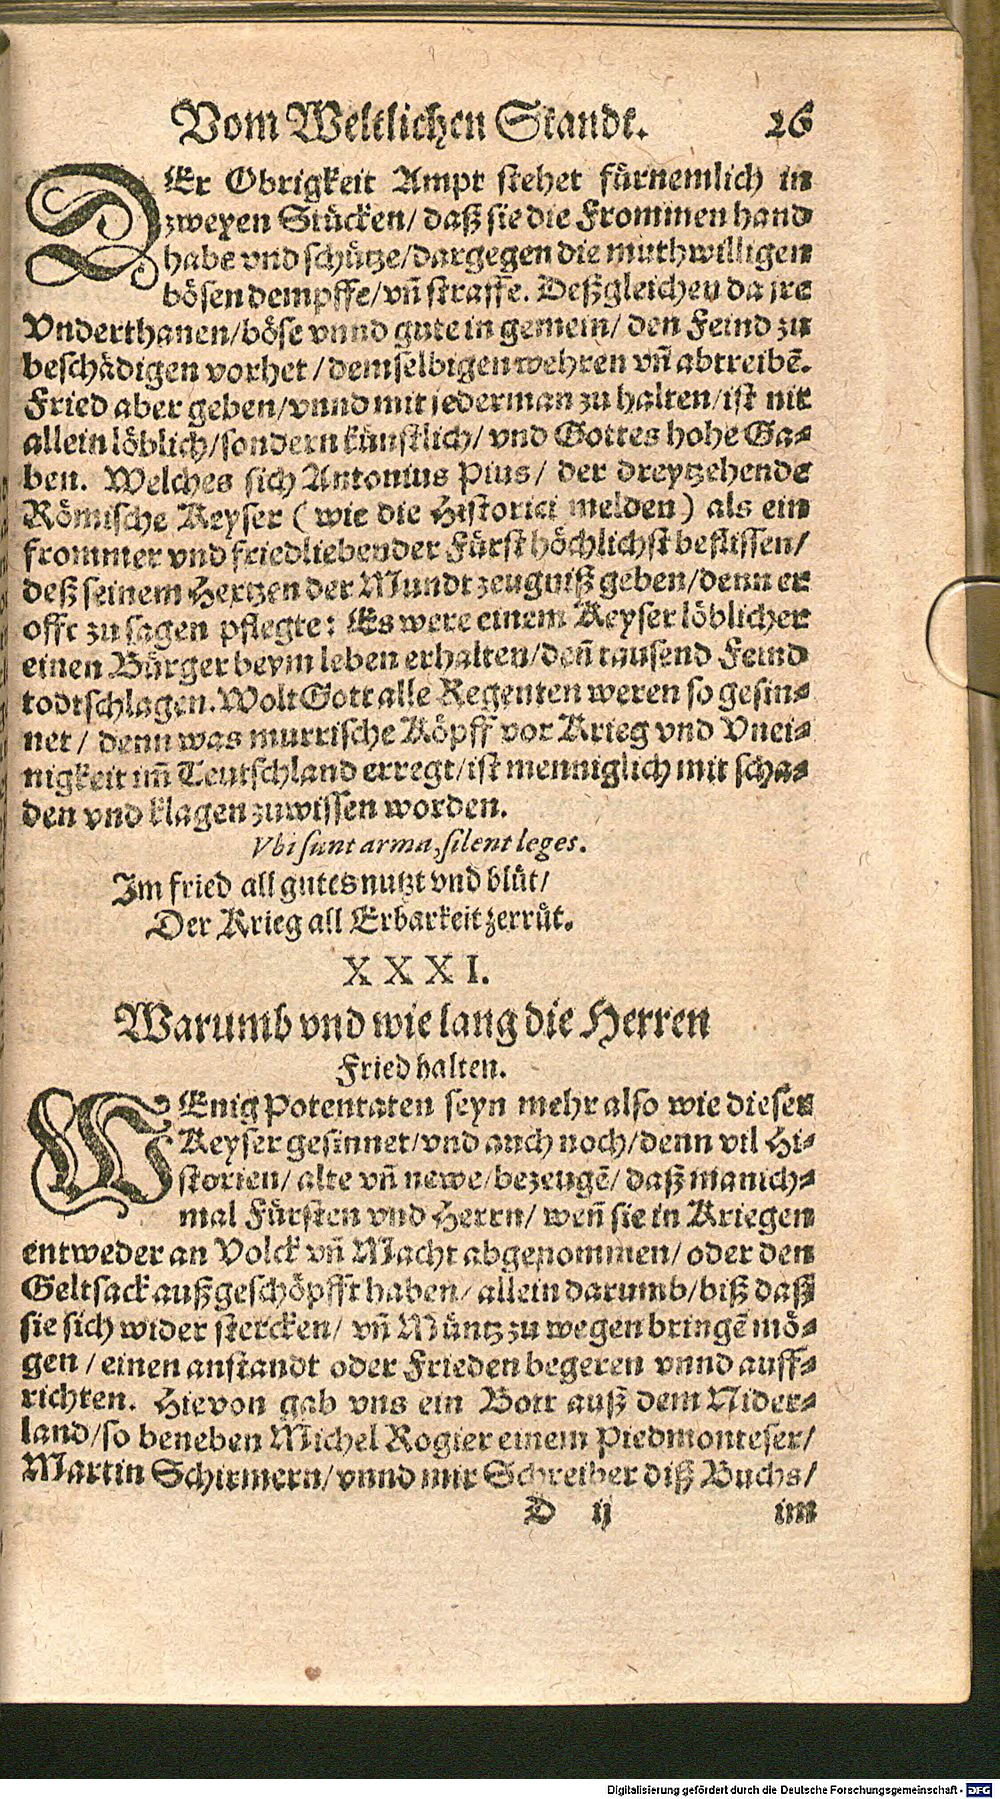 Vom Weltlichen Standt. 26
DEr Obrigkeit Ampt stehet fürnemlich in
zweyen Stücken/ daß sie die Frommen hand
habe vnd schütze/dargegen die muthwilligen
bösen dempffe/vñ straffe. Deßgleichen da jre
Vnderthanen/böse vnnd gute in gemein/ den Feind zu
beschädigen vorhet/demselbigen wehren vñ abtreibē.
Fried aber geben/vnnd mit jederman zu halten/ist nit
allein löblich/sondern künstlich/ vnd Gottes hohe Ga-
ben. Welches sich Antonius Pius/ der dreytzehende
Römische Keyser (wie die Historici melden) als ein
frommer vnd friedliebender Fürst höchlichst beflissen/
deß seinem Hertzen der Mundt zeugniß geben/denn er
offt zu sagen pflegte: Es were einem Keyser löblicher
einen Bürger beym leben erhalten/deñ tausend Feind
todtschlagen. Wolt Gott alle Regenten weren so gesin-
net/ denn was murrische Köpff vor Krieg vnd Vnei-
nigkeit im̃ Teutschland erregt/ist menniglich mit scha-
den vnd klagen zuwissen worden.
Vbi sunt arma, silent leges.
Im fried all gutes nutzt vnd blüt/
Der Krieg all Erbarkeit zerrüt.
XXXI.
Warumb vnd wie lang die Herren
Fried halten.
WEnig Potentaten seyn mehr also wie dieser
Keyser gesinnet/vnd auch noch/denn vil Hi-
storien/ alte vñ newe/bezeugē/ daß manich-
mal Fürsten vnd Herrn/ weñ sie in Kriegen
entweder an Volck vñ Macht abgenommen/ oder den
Geltsack außgeschöpfft haben/ allein darumb/biß daß
sie sich wider stercken/ vñ Müntz zu wegen bringē mö-
gen/einen anstandt oder Frieden begeren vnnd auff-
richten. Hievon gab vns ein Bott auß dem Nider-
land/so beneben Michel Rogier einem Piedmonteser/
Martin Schirmern/vnnd mir Schreiber diß Buchs/
D ij im
Digitalisierung gefördert durch die Deutsche Forschungsgemeinschaft - DFG